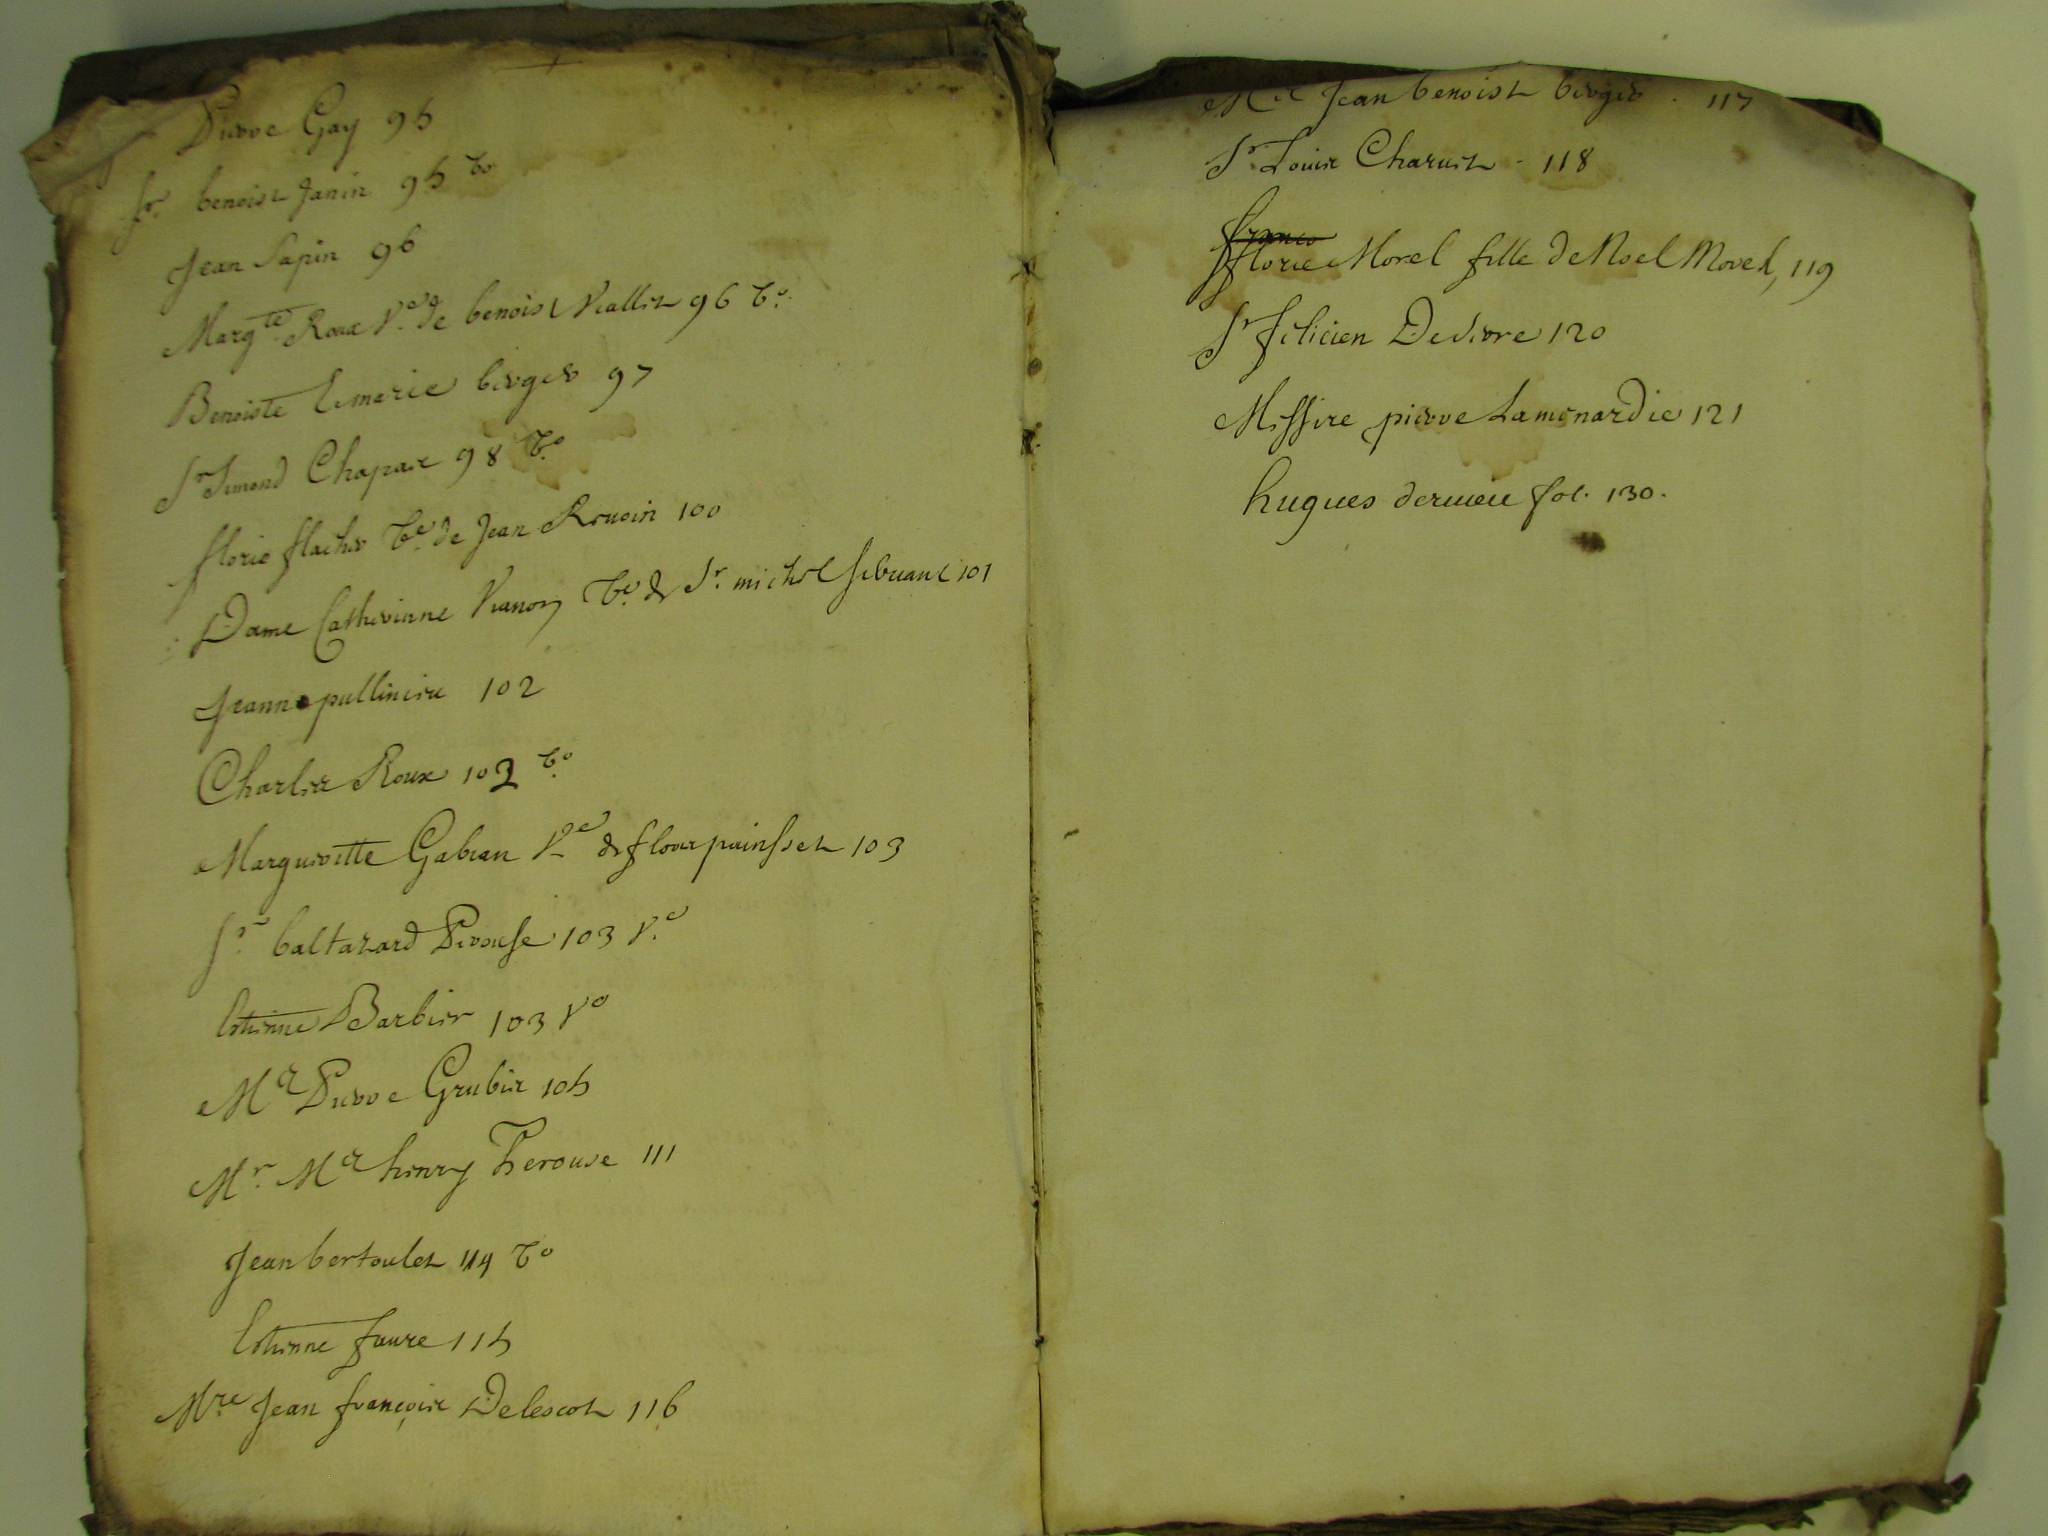 Pierre Gay 95
Sr. benoist Janin 95 vo
Jean Sapin 96
Margte. Roux Ve. de benoist Viallet 96 vo.
Benoiste Emarie berger 97
Sr Simond Chapar 98 vo.
florie flacher ve. de Jean 100
Dame Catherinne Vianon ve. de Sr. michel 101
Jeanne pullinere 102
Charles Roux 102 vo.
Margueritte Gabian Ve de flour painsset 103
Sr baltazard Perouse 103 v.o
Estienne Barbier 103 vo
Me Pierre Grubis 105
Mr. Me henry Perouse 111
Jean bertoulet 114 vo
Estienne faure 115
Mre Jean françois Delescot 116
Me Jean benoist berger . 117
Sr Louis Charvet - 118
florie Morel fille de Noel Morel, 119
Sr felicien Devivre 120
Messire pierre Lamenardie 121
hugues derniere fol. 130.